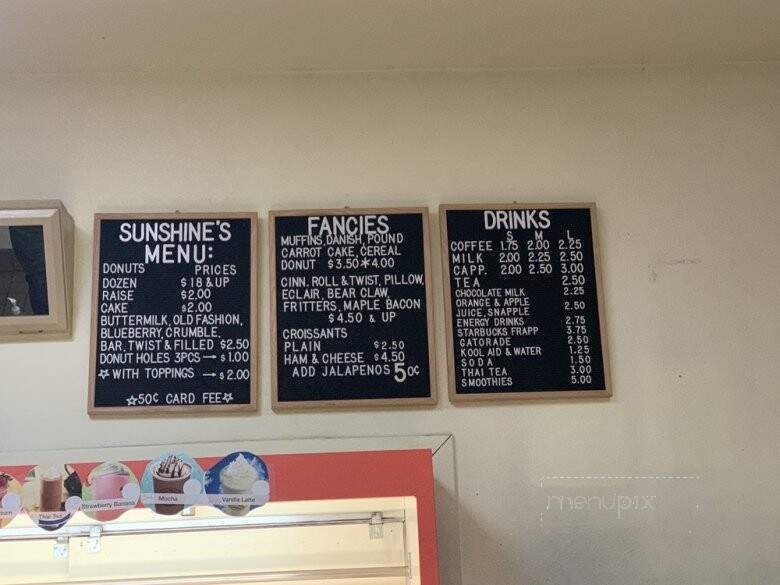 SUNSHINE'S
MENU:
DONUTS PRICES
DOZEN $18 & UP
RAISE $2.00
CAKE $2.00
BUTTERMILK, OLD FASHION,
BLUEBERRY, CRUMBLE,
BAR, TWIST & FILLED $2.50
DONUT HOLES 3PCS → $1.00
☆ WITH TOPPINGS → $2.00
☆50¢ CARD FEE☆
FANCIES
MUFFINS, DANISH, POUND
CARROT CAKE, CEREAL
DONUT $3.50*4.00
CINN. ROLL & TWIST, PILLOW,
ECLAIR, BEAR CLAW,
FRITTERS, MAPLE BACON
$4.50 & UP
CROISSANTS
PLAIN $2.50
HAM & CHEESE $4.50
ADD JALAPENOS 50¢
DRINKS
S M L
COFFEE 1.75 2.00 2.25
MILK 2.00 2.25 2.50
CAPP. 2.00 2.50 3.00
TEA 2.50
CHOCOLATE MILK 2.25
ORANGE & APPLE
JUICE, SNAPPLE 2.50
ENERGY DRINKS 2.75
STARBUCKS FRAPP 3.75
GATORADE 2.50
KOOL AID & WATER 1.25
SODA 1.50
THAI TEA 3.00
SMOOTHIES 5.00
Thai Tea
Strawberry Banana
Mocha
Vanilla Latte
menupix